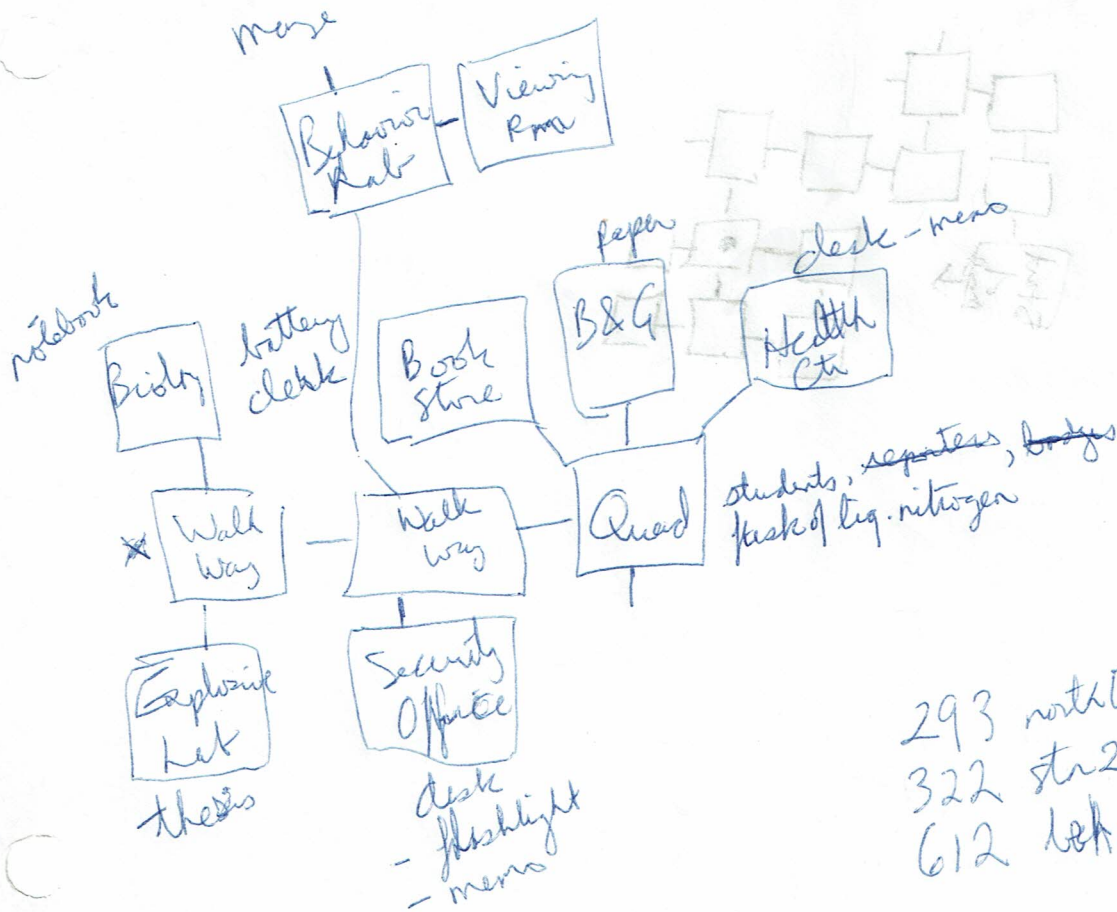 maze
Behavior
Lab
Viewing
Room
paper
desk - memo
notebook
Biology
battery
desk
Book
Store
B&G
Health
Ctr
Walk
Way
Walk
way
Quad
students, reporters, badges
flask of liq. nitrogen
Explosive
Lab
thesis
Security
Office
desk
- flashlight
- memo
293 north
322
612